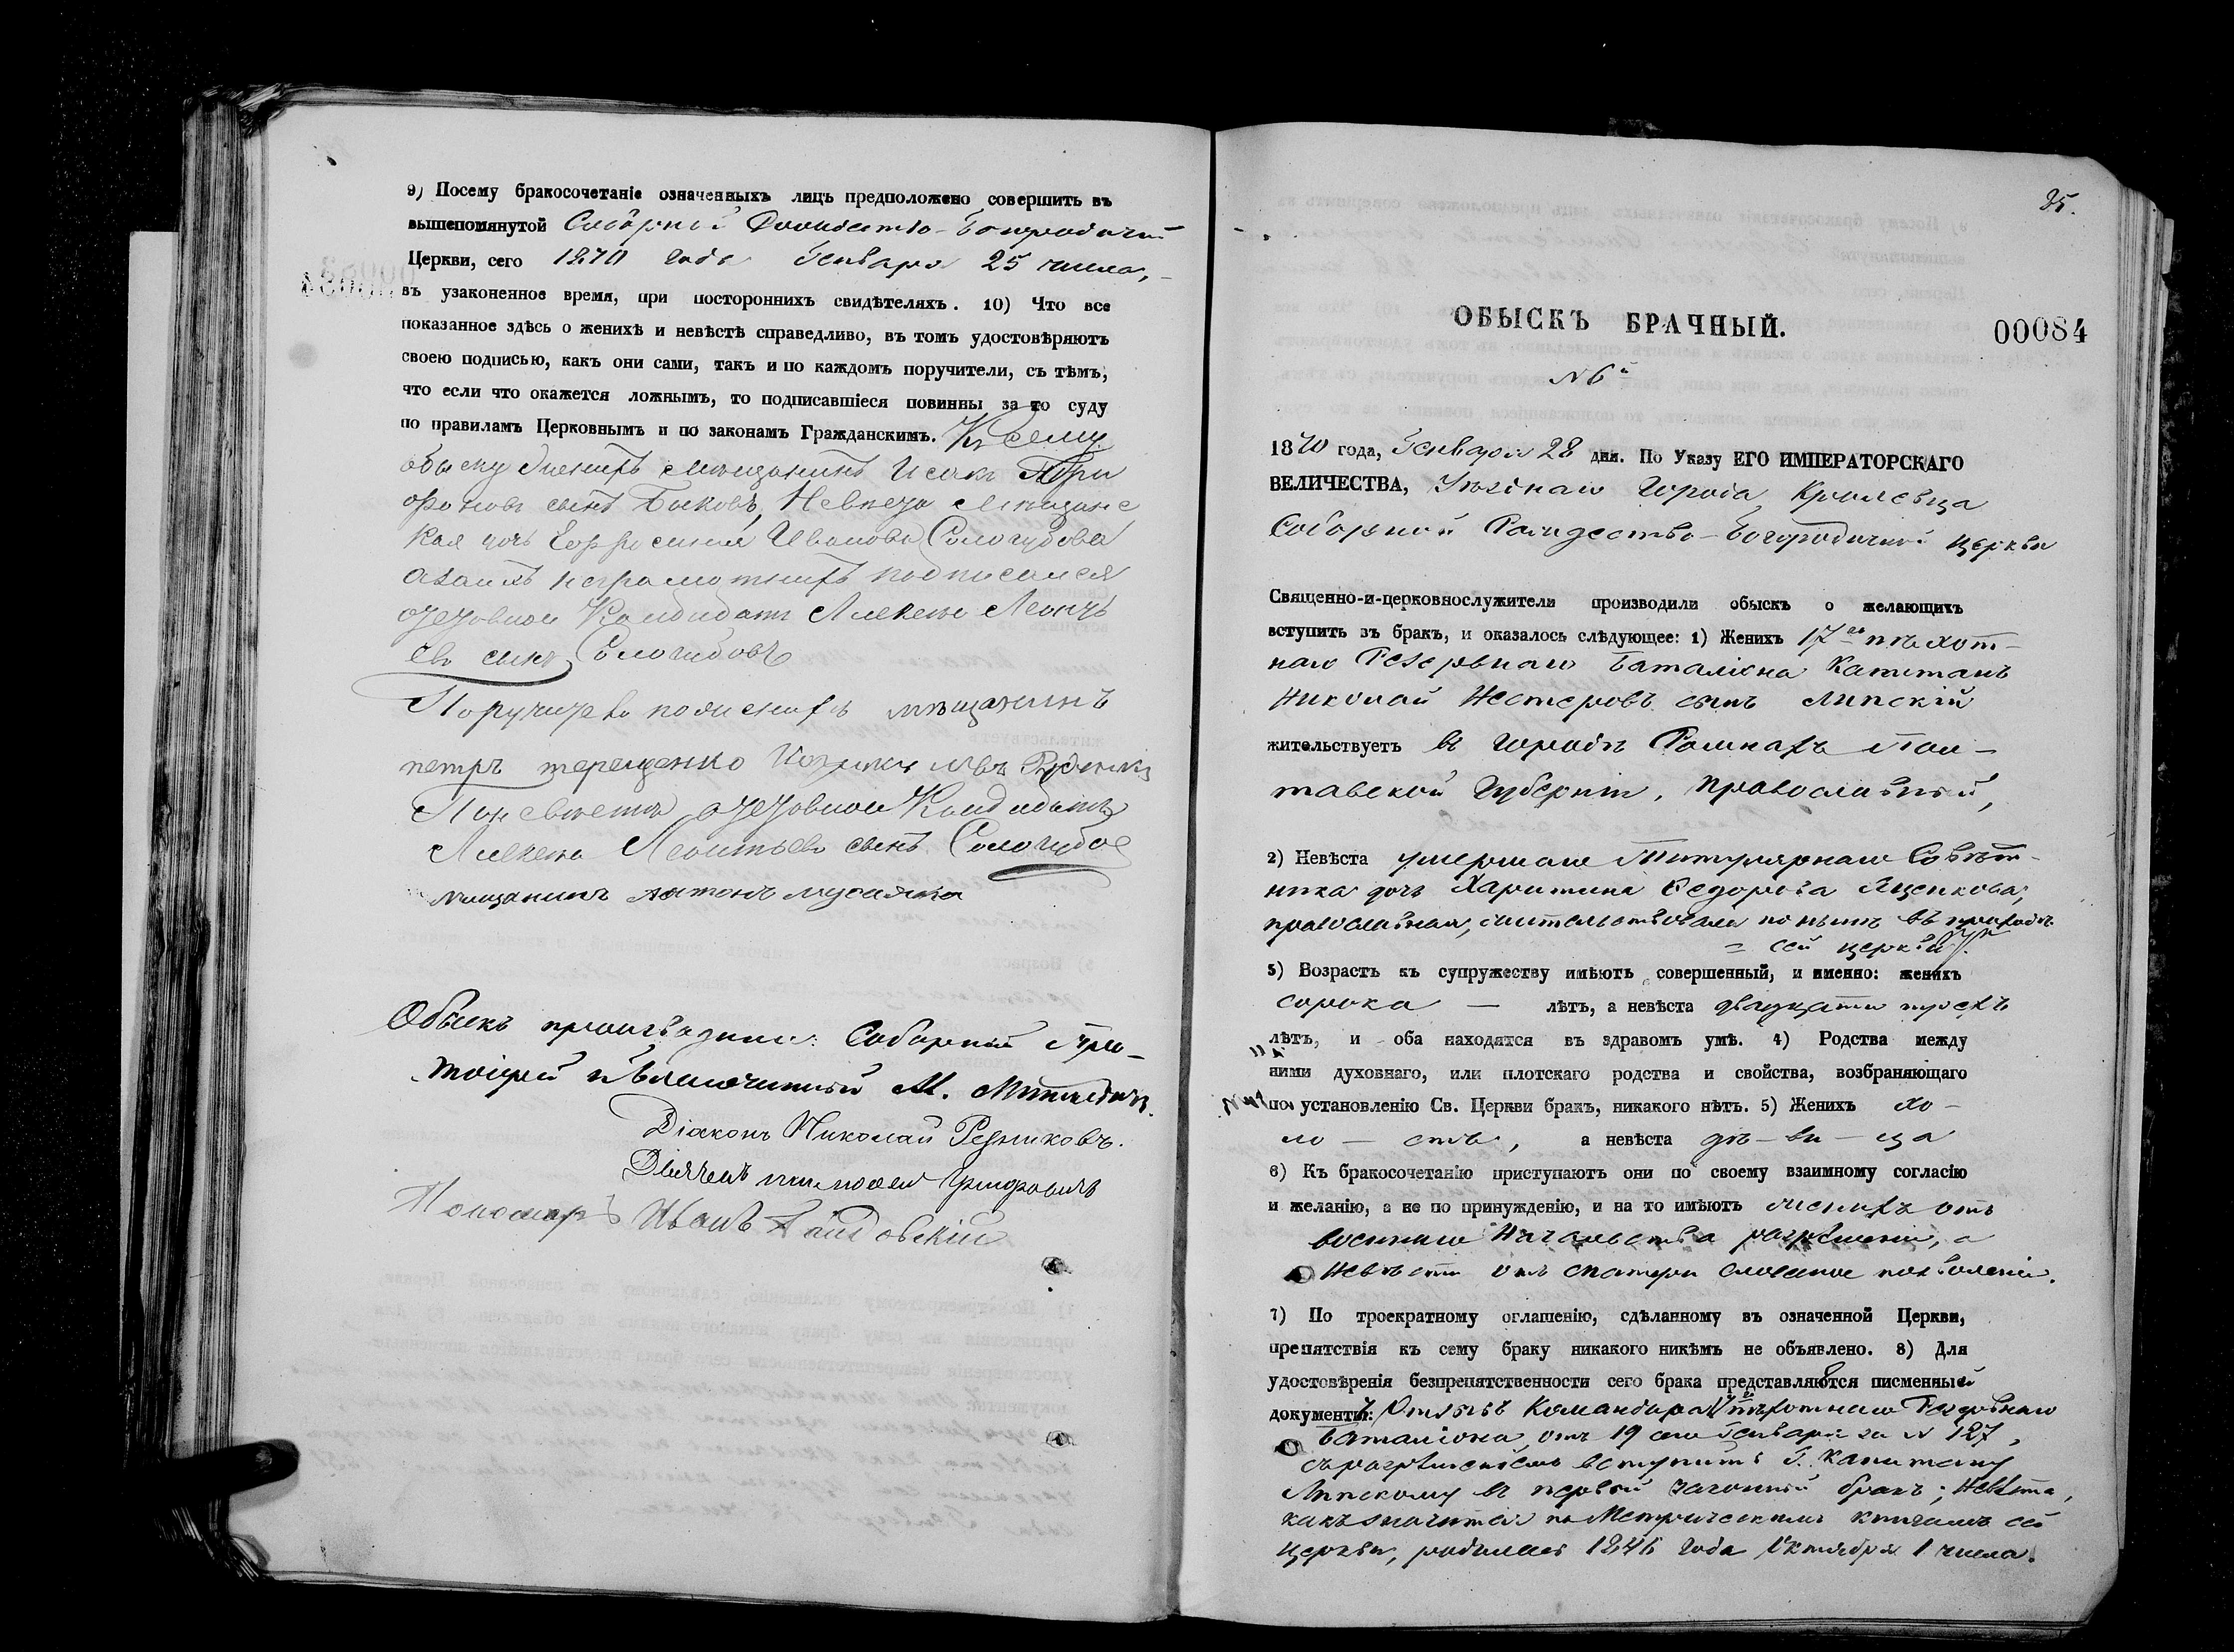 9) Посему бракосочетаніе означенныхъ лицъ предположено совершить въ
вышепомянутой Соборной Рождество-Богородичной
Церкви, сего 1870 года Генваря 25 числа,
въ узаконенное время, при постороннихъ свидѣтеляхъ. 10) Что все
показанное здѣсь о женихѣ и невѣстѣ справедливо, въ томъ удостовѣряютъ
своею подписью, какъ они сами, такъ и по каждомъ поручители, съ тѣмъ,
что если что окажется ложнымъ, то подписавшіеся повинны за то суду
по правиламъ Церковнымъ и по законамъ Гражданскимъ. Къ сему
обыску женихъ мещанинъ Исакъ
сынъ Быковъ, Невеста мещанс
кая дочь Ефросиния Иванова Сологубова
азаихъ неграмотныхъ подписался
Кандидатъ Алексей Леонть
евъ сынъ Сологубовъ
по женихѣ мѣщанинъ
петръ терещенко
По невесте Кандидатъ
Алексей Леонтьевъ сынъ Сологубов
мищанинъ Антонъ мусияка
Обыскъ производили: Соборный Про-
тоіерей и благочинный М.
Діаконъ Николай Резниковъ.
Дьячекъ тимофей Григровичъ
Пономаръ Иванъ
25.
ОБЫСКЪ БРАЧНЫЙ.
00084
N 6й
1870 года, Генваря 28 дня. По Указу ЕГО ИМПЕРАТОРСКАГО
ВЕЛИЧЕСТВА, Уѣзднаго Города Кролевца
Соборной Рождество-Богородичной церкви
Священно-и-церковнослужители производили обыскъ о желающихъ
вступить въ бракъ, и оказалось слѣдующее: 1) Женихъ 17го пѣхот-
наго Резервнаго баталіона Капитанъ
Николай Нестеровъ сынъ Липскій
жительствуетъ въ городѣ Ромнахъ Пол-
тавской Губерніи, православный,
2) Невѣста умершаго Титулярнаго Совѣт-
ника дочь Харитина Федорова Яценкова,
православная, жительствовала по нынѣ въ приходѣ
= сей церкви.
3) Возрастъ къ супружеству имѣютъ совершенный, и именно: женихъ
сорока — лѣтъ, а невѣста двадцати трехъ
лѣтъ, и оба находятся въ здравомъ умѣ. 4) Родства между
ними духовнаго, или плотскаго родства и свойства, возбраняющаго
по установленію Св. Церкви бракъ, никакого нѣтъ. 5) Женихъ хо-
ло — стъ, а невѣста дѣ-ви-ца
6) Къ бракосочетанію приступаютъ они по своему взаимному согласію
и желанію, а не по принужденію, и на то имѣютъ женихъ отъ
военнаго Начальства разрѣшеніе, а
невѣста отъ матери словесное позволеніе.
7) По троекратному оглашенію, сдѣланному въ означенной Церкви,
препятствія къ сему браку никакого никѣмъ не объявлено. 8) Для
удостовѣренія безпрепятственности сего брака представляются писменный
документъ: Отзывъ Командира 17го пѣхотнаго Резервнаго
баталіона, отъ 19 сего Генваря за N 127,
съ разрѣшеніемъ вступить Г. Капитану
Липскому въ первый законный бракъ; Невѣста,
какъ значится по Метрическимъ книгамъ сей
церкви, родилась 1846 года Октября 1 числа.